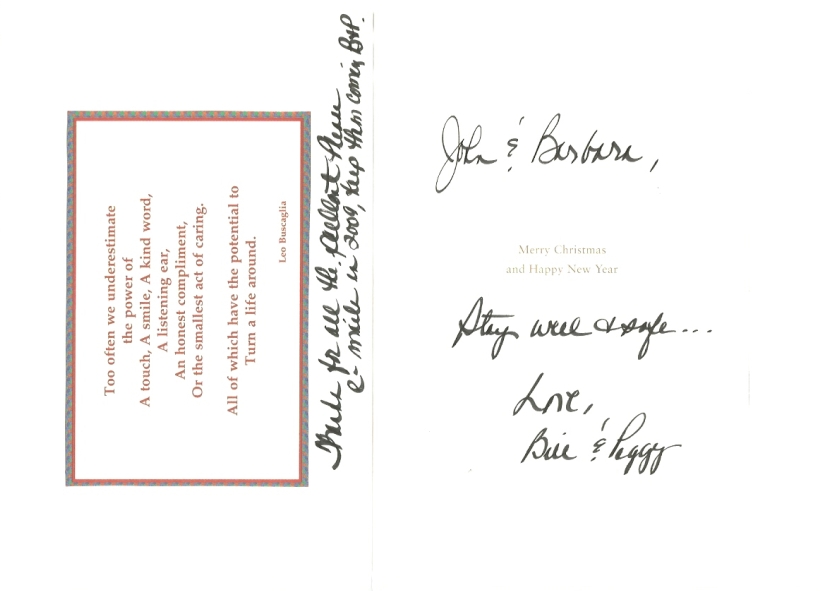 Too often we underestimate
the power of
A touch, A smile, A kind word,
A listening ear,
An honest compliment,
Or the smallest act of caring.
All of which have the potential to
Turn a life around.
Leo Buscaglia
Thanks for all the excellent
e-mails in 2009, keep them comin B&P.
John & Barbara,
Merry Christmas
and Happy New Year
Stay well & safe...
Love,
Bill & Peggy